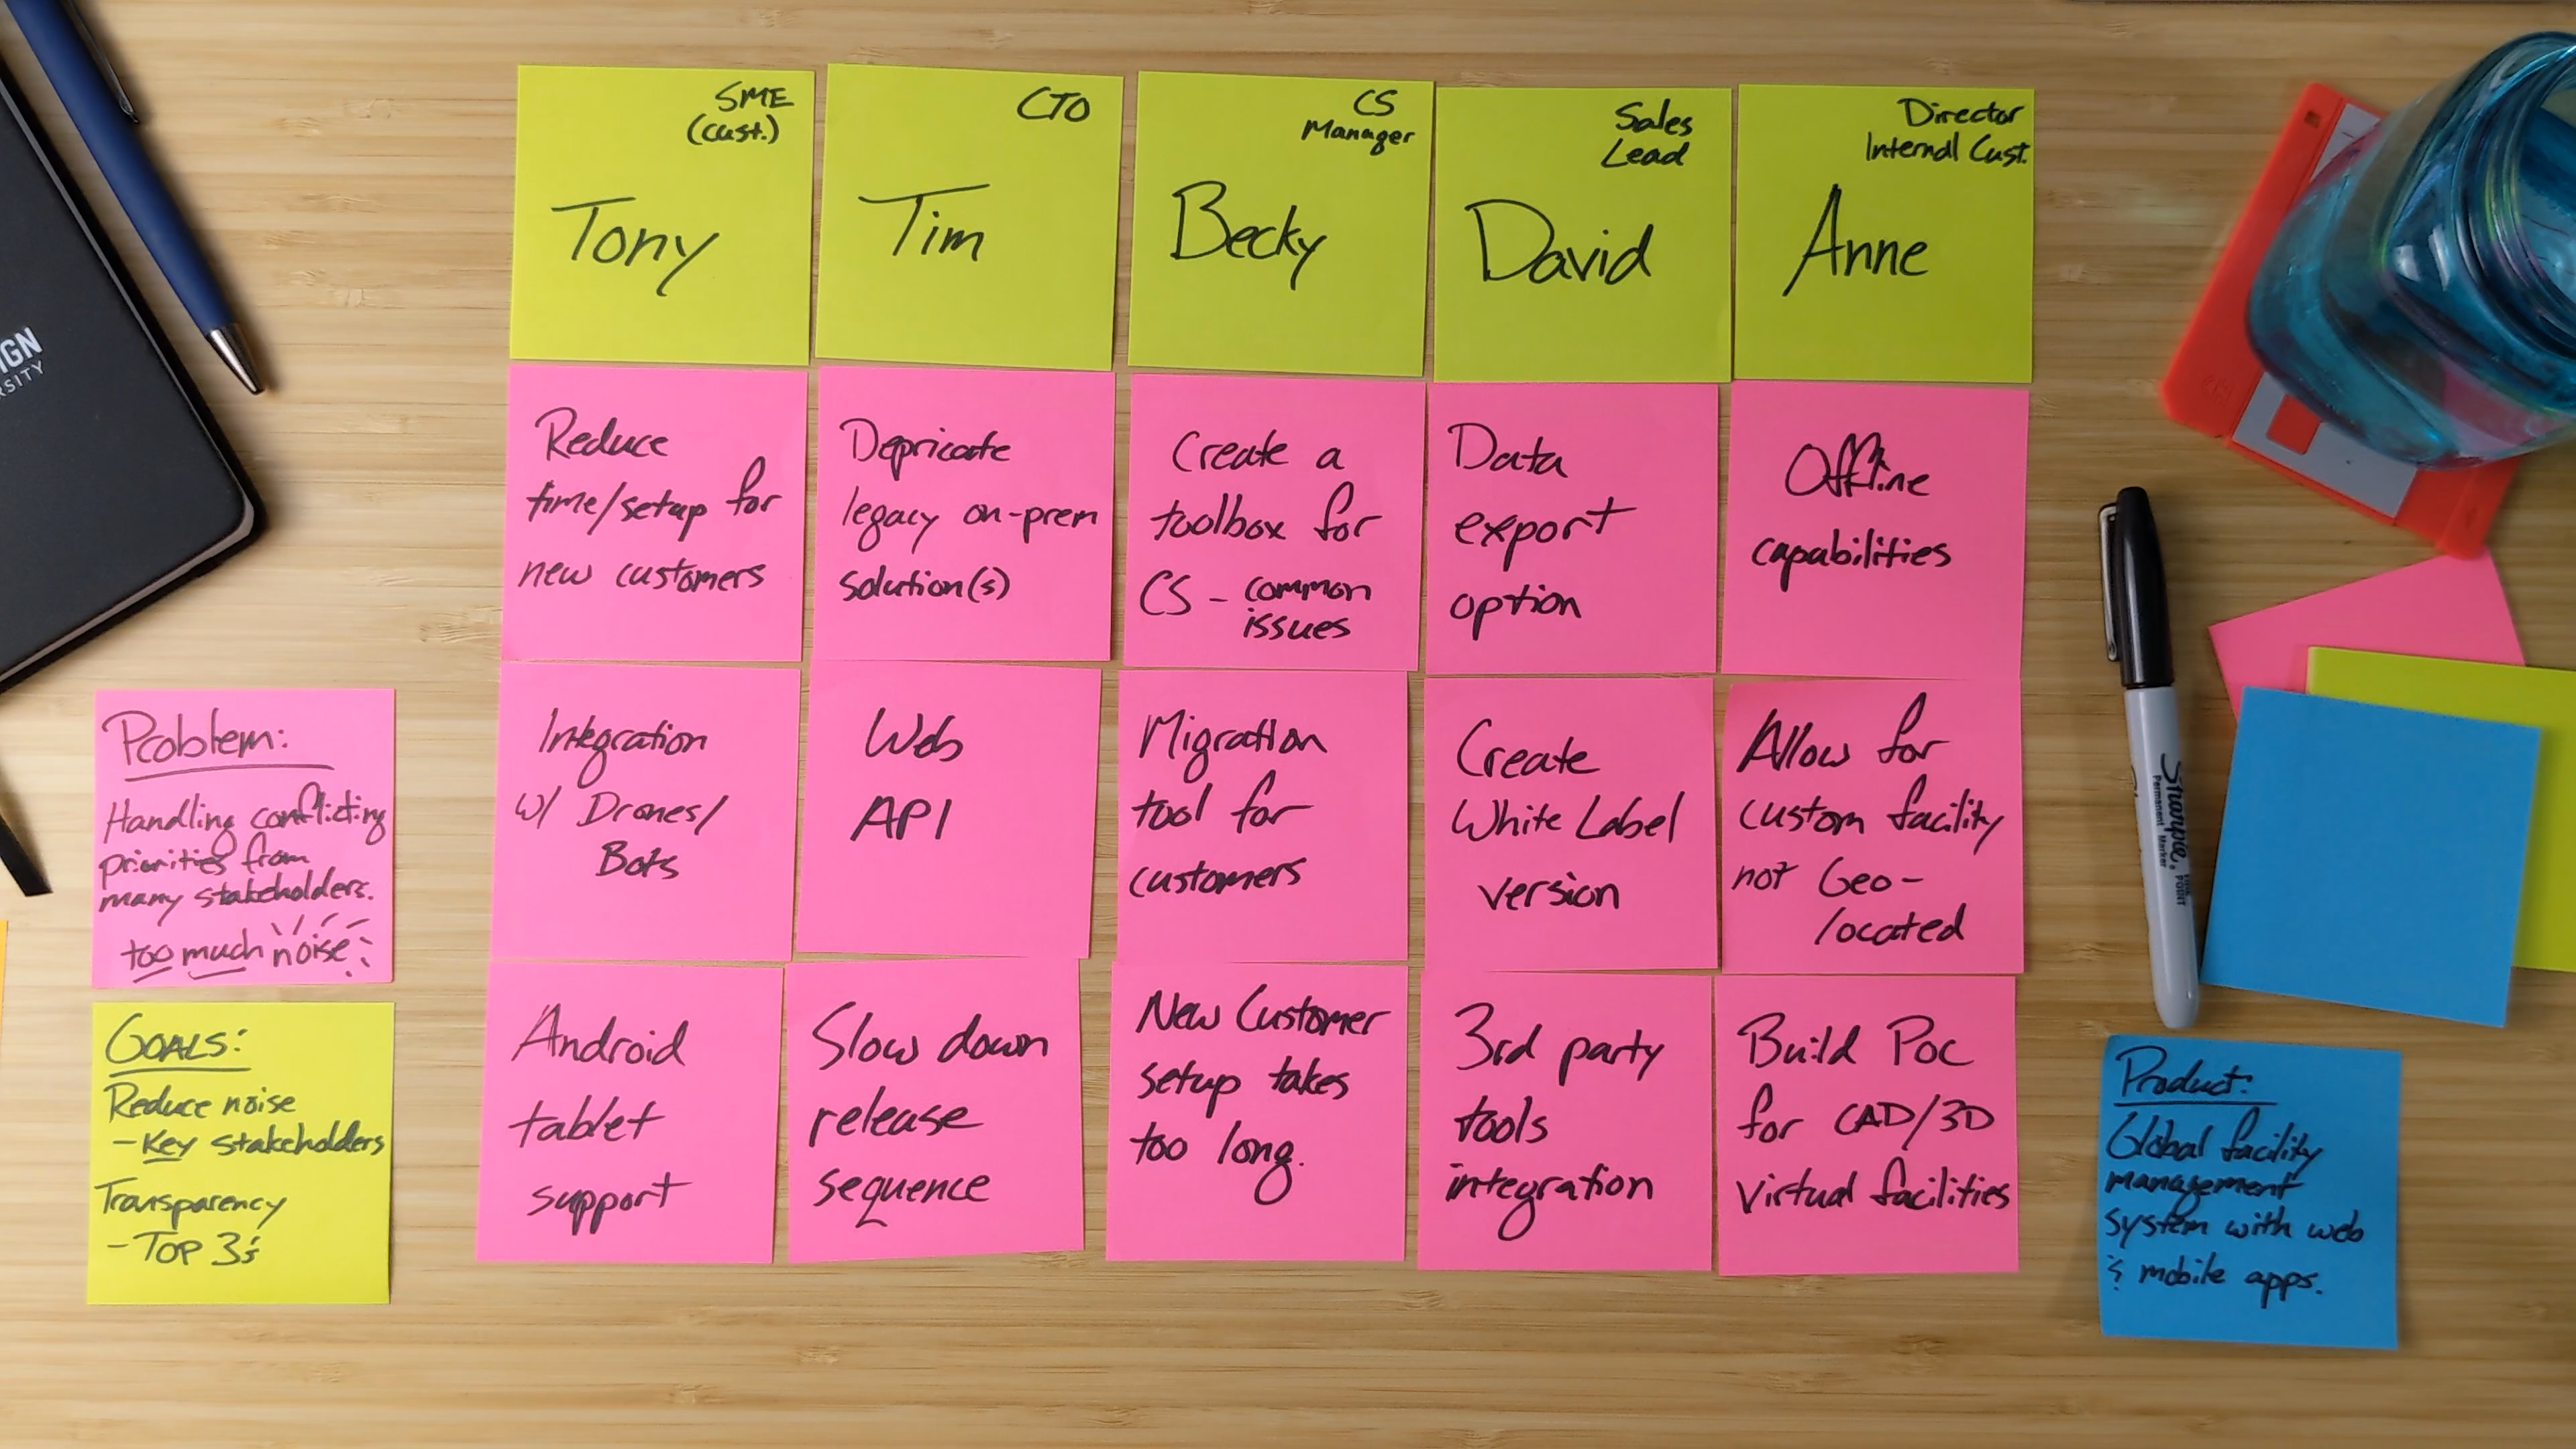 SME
(cust.)
Tony
CTO
Tim
CS
Manager
Becky
Sales
Lead
David
Director
Internal Cust.
Anne
Reduce
time/setup for
new customers
Depricate
legacy on-prem
solution(s)
Create a
toolbox for
CS - common
issues
Data
export
option
Offline
capabilities
Integration
w/ Drones/
Bots
Web
API
Migration
tool for
customers
Create
White Label
version
Allow for
custom facility
not Geo-
located
Android
tablet
support
Slow down
release
sequence
New Customer
setup takes
too long.
3rd party
tools
integration
Build Poc
for CAD/3D
virtual facilities
Problem:
Handling conflicting
priorities from
many stakeholders.
too much noise
GOALS:
Reduce noise
- Key stakeholders
Transparency
- TOP 3's
Product:
Global facility
management
system with web
& mobile apps.
Sharpie
Permanent Marker
IGN
RSITY